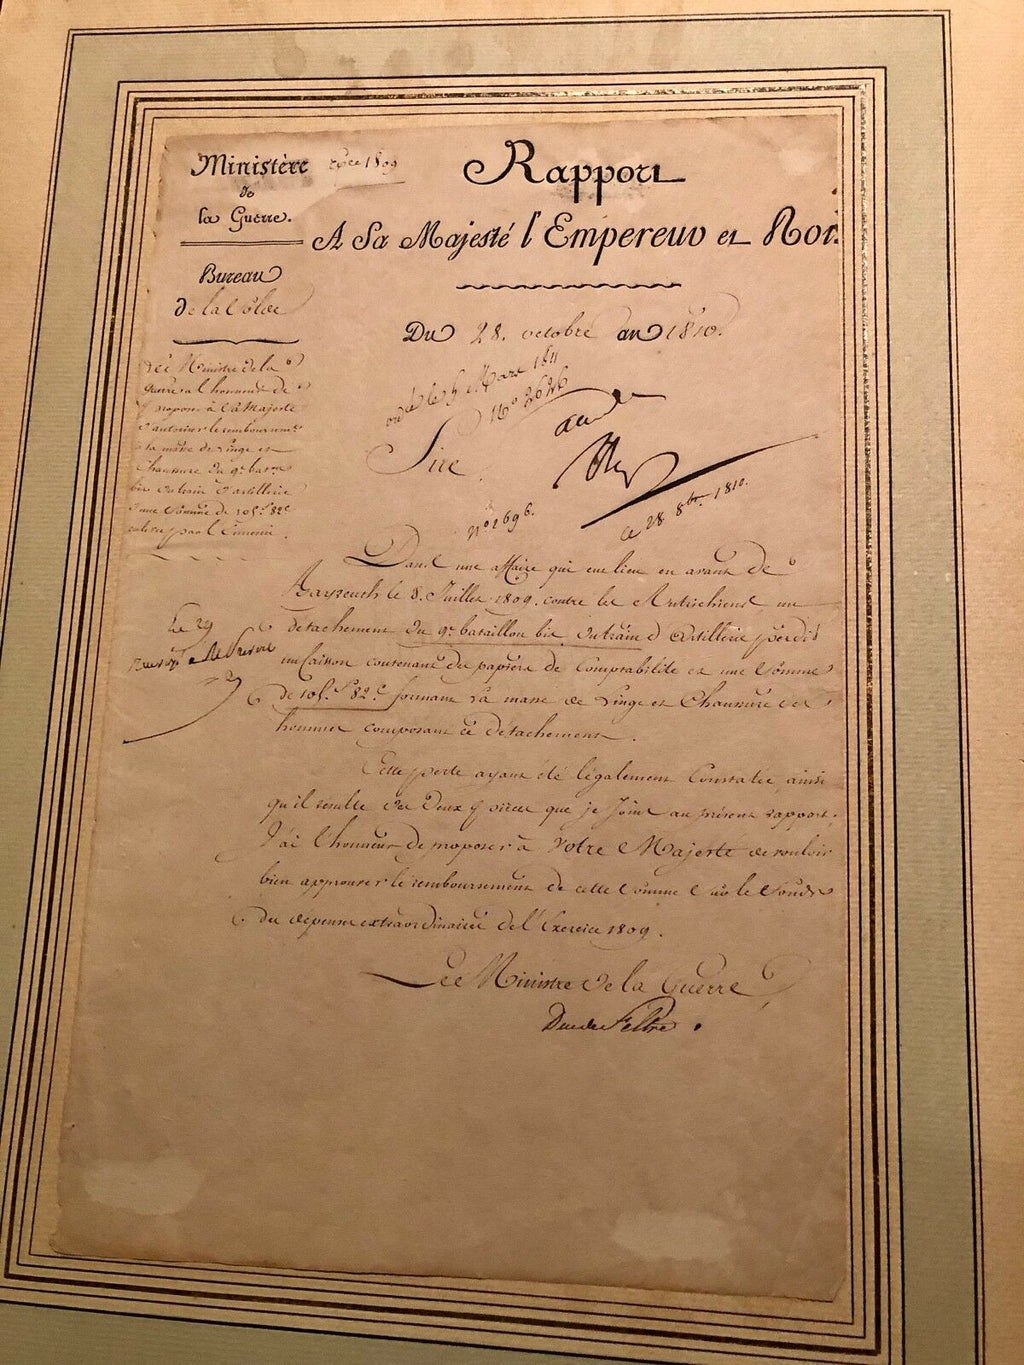 Ministère
de
la Guerre.
Exce 1809
Rapport
A Sa Majesté l'Empereur et Roi.
Bureau
de la Solde
Du 28. octobre an 1810.
Le Ministre de la
guerre a l'honneur de
proposer à Sa Majesté
d'autoriser le remboursemt
à la masse de Linge et
Chaussure du 9e baton
bis du train d'artillerie
d'une Somme de 82c
enlevée par l'Ennemi.
le 5 Mars 1811
No 2626
Sire
No 2696.
le 28 8bre 1810.
Dans une affaire qui eut lieu en avant de
le 8. Juillet 1809. contre les Autrichiens, un
détachement du 9e bataillon bis du train d'Artillerie perdit
un Caisson contenant des papiers de Comptabilité et une Somme
de 82c formant la masse de Linge et Chaussure des
hommes composant ce détachement.
Le 29
Cette perte ayant été légalement Constatée, ainsi
qu'il résulte des deux pièces que je joins au présent rapport,
J'ai l'honneur de proposer à Votre Majesté de vouloir
bien approuver le remboursement de cette Somme sur le fonds
des dépenses extraordinaires de l'Exercice 1809.
Le Ministre de la Guerre
Duc de Feltre.